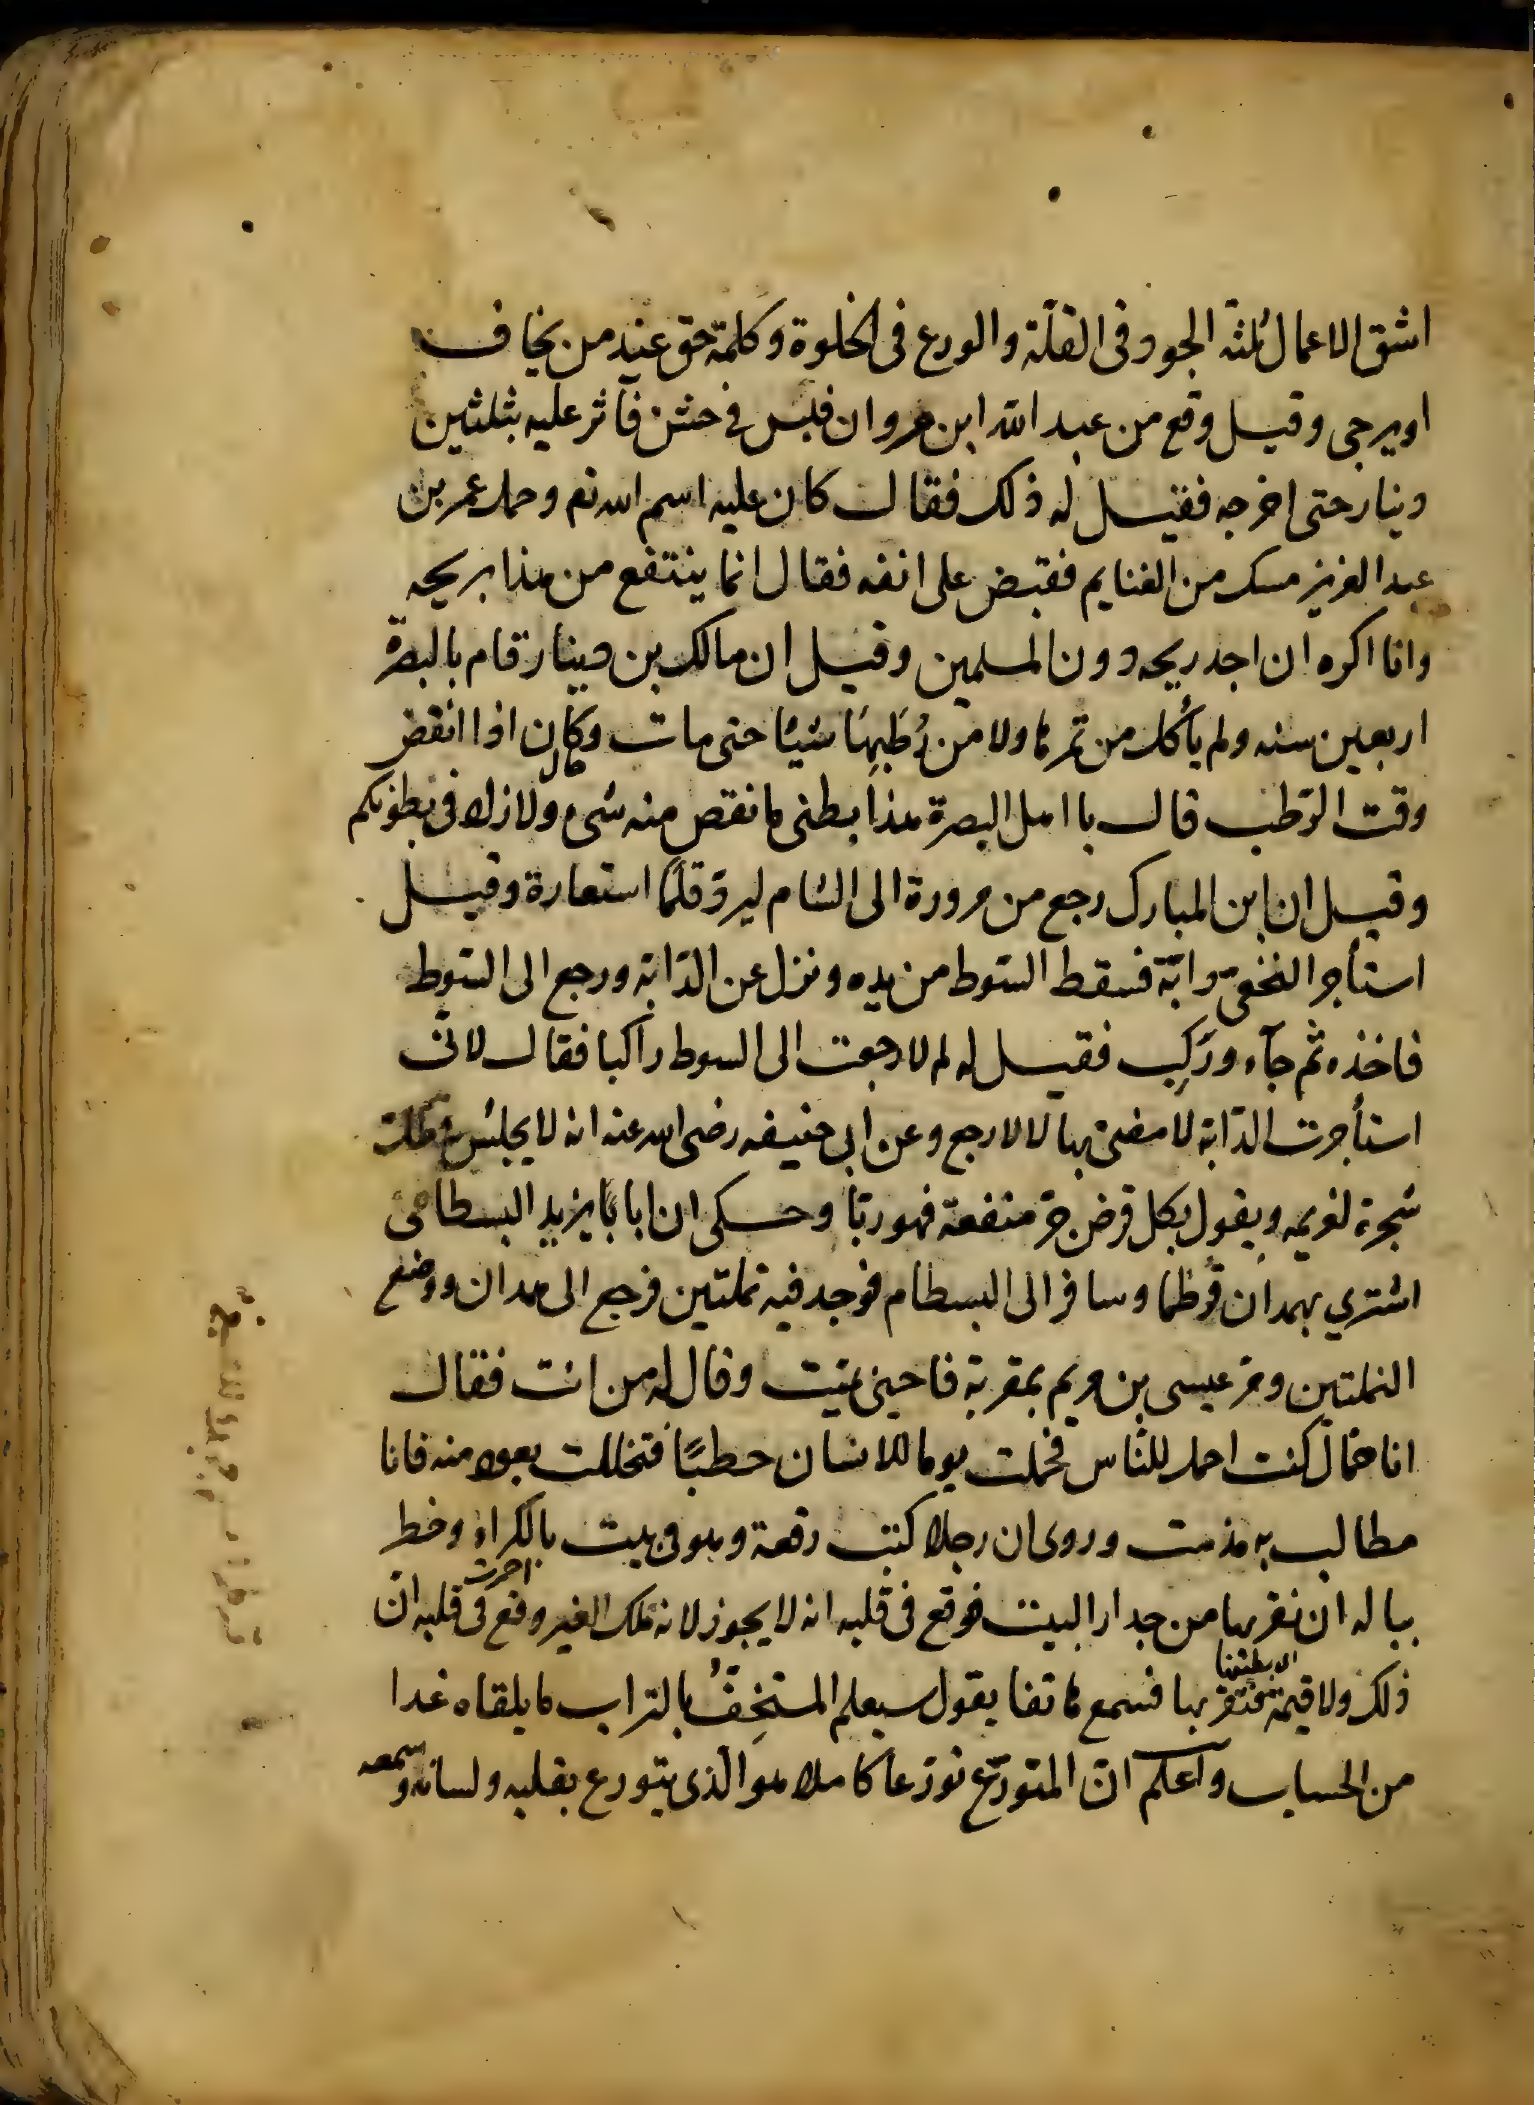 اشق الاعمال ثلثة الجود فى القلّة والورع فى الخلوة وكلمة حق عند من يخاف
او يرجى وقيل وقع من عبد الله ابن مروان فلس فى حش فآثر عليه بثلثين
دينار حتى اخرجه فقيل له ذلك فقال كان عليه اسم الله تع وحمل عمر بن
عبد العزيز مسك من الغنايم فقبض على انفه فقال انما ينتفع من هذا بريحه
وانا اكره ان اجد ريحه دون المسلمين وقيل ان مالك بن دينار قام بالبصرة
اربعين سنه ولم يأكل من تمرها ولا من رُطَبِهَا شيئا حتى مات وكان اذا انقض
وقت الرّطب قال يا اهل البصرة هذا بطنى ما نقص منه شىء ولا زاد فى بطونكم
وقيل ان ابن المبارك رجع من مرورة الى الشام ليردّ قلمًا استعارة وقيل
استأجر النخعىّ دابّة فسقط السّوط من يده ونزل عن الدّابة ورجع الى السّوط
فاخذه ثم جآء ورَكِب فقيل له لم لا رجعت الى السوط راكبا فقال لانّى
استأجرت الدّابة لامضى بها لا لارجع وعن ابى حنيفه رضى الله عنه انه لا يجلس تحت ظل
شجرة لغريمه ويقول كل قرض جرّ منفعة فهو ربّا وحكى ان ابا بايزيد البسطامى
اشترى بهمدان قرطما وسافر الى البسطام فوجد فيه نملتين فرجع الى همدان ووضع
النملتين ومرّ عيسى بن مريم بمقربة فاحيى ميّت وقال له من انت فقال
انا حمّال كنت احمل للنّاس فحملت يوما للانسان حطبًا فتخللت بعود منه فانا
مطالب به مذ مت وروى ان رجلا كتب رقعة وهو فى بيت بالكراء وخطر
بباله ان نقربها من جدار البيت فوقع فى قلبه انه لا يجوز لانه ملك الغير وقع فى قلبه انّ
ذلك ولا قيمة بها فسمع هاتفا يقول سيعلم المستخِفُّ بالتراب ما يلقاه غدا
من الحساب واعلم انّ المتورّع تورّعا كاملا هو الّذى يتورع بقلبه ولسانه وسمعه